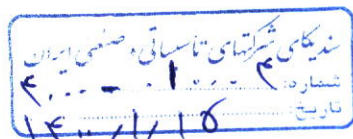 سندیکای شرکتهای تأسیساتی و صنعتی ایران
شماره:
تاریخ: ۱۴۰۰/۱/۱۵